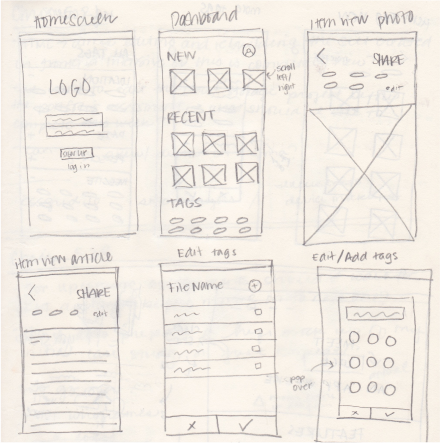 Homescreen
LOGO
sign up
log in
Dashboard
NEW
A
scroll
left/
right
RECENT
TAGS
Item view photo
< SHARE
edit
Item view article
< SHARE
edit
Edit tags
File Name +
x ✓
Edit/Add tags
pop
over
x ✓